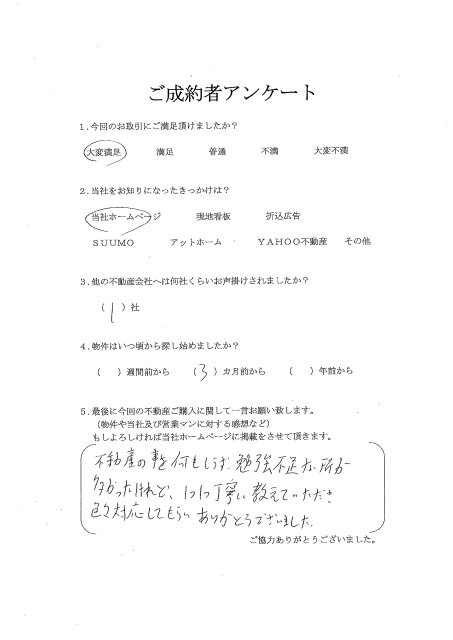 ご成約者アンケート
1.今回のお取引にご満足頂けましたか?
大変満足 満足 普通 不満 大変不満
2.当社をお知りになったきっかけは?
当社ホームページ 現地看板 折込広告
SUUMO アットホーム YAHOO不動産 その他
3.他の不動産会社へは何社くらいお声掛けされましたか?
(1)社
4.物件はいつ頃から探し始めましたか?
( )週間前から (3)カ月前から ( )年前から
5.最後に今回の不動産ご購入に関して一言お願い致します。
(物件や当社及び営業マンに対する感想など)
もしよろしければ当社ホームページに掲載をさせて頂きます。
不動産の事を何もしらず勉強不足な所が
多かったけれど、1つ1つ丁寧に教えていただき
色々対応してもらいありがとうございました。
ご協力ありがとうございました。